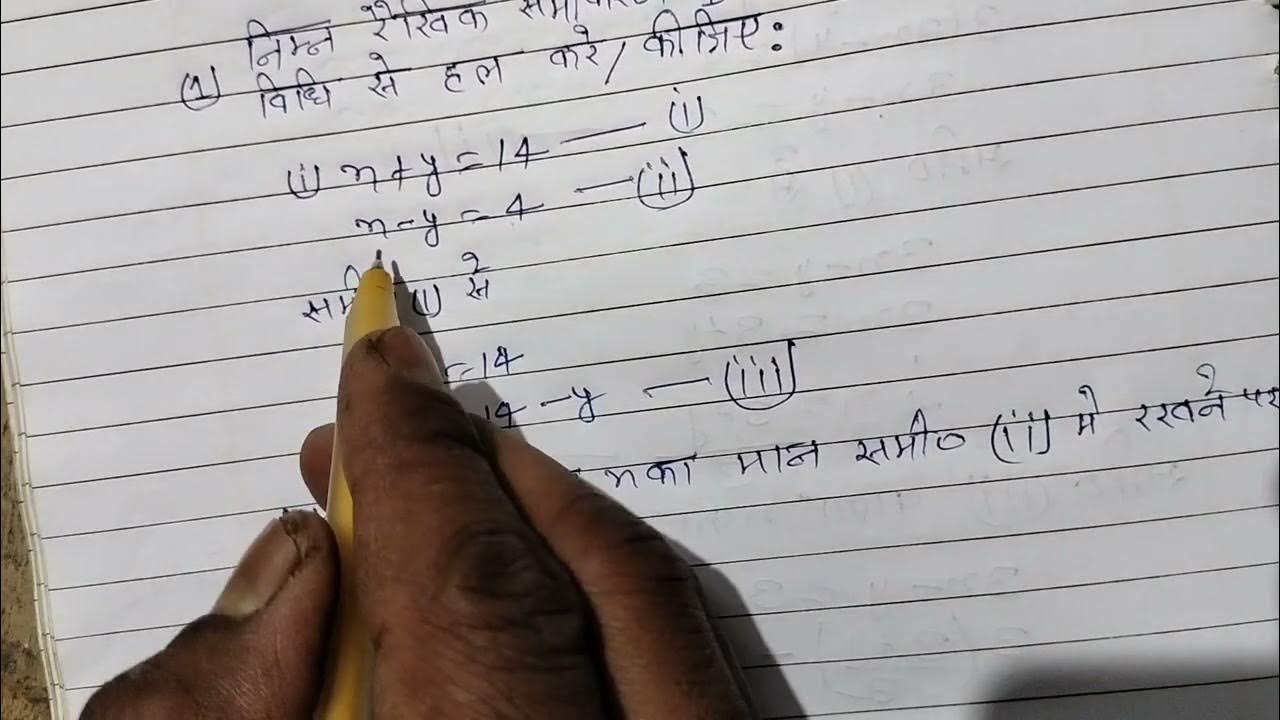 निम्न रैखिक
(1) विधि से हल करे/कीजिए:
(i) x+y=14 — (i)
x-y=4 — (ii)
(i) से
=14
14-y — (iii)
x का मान समी० (ii) मे रखने पर